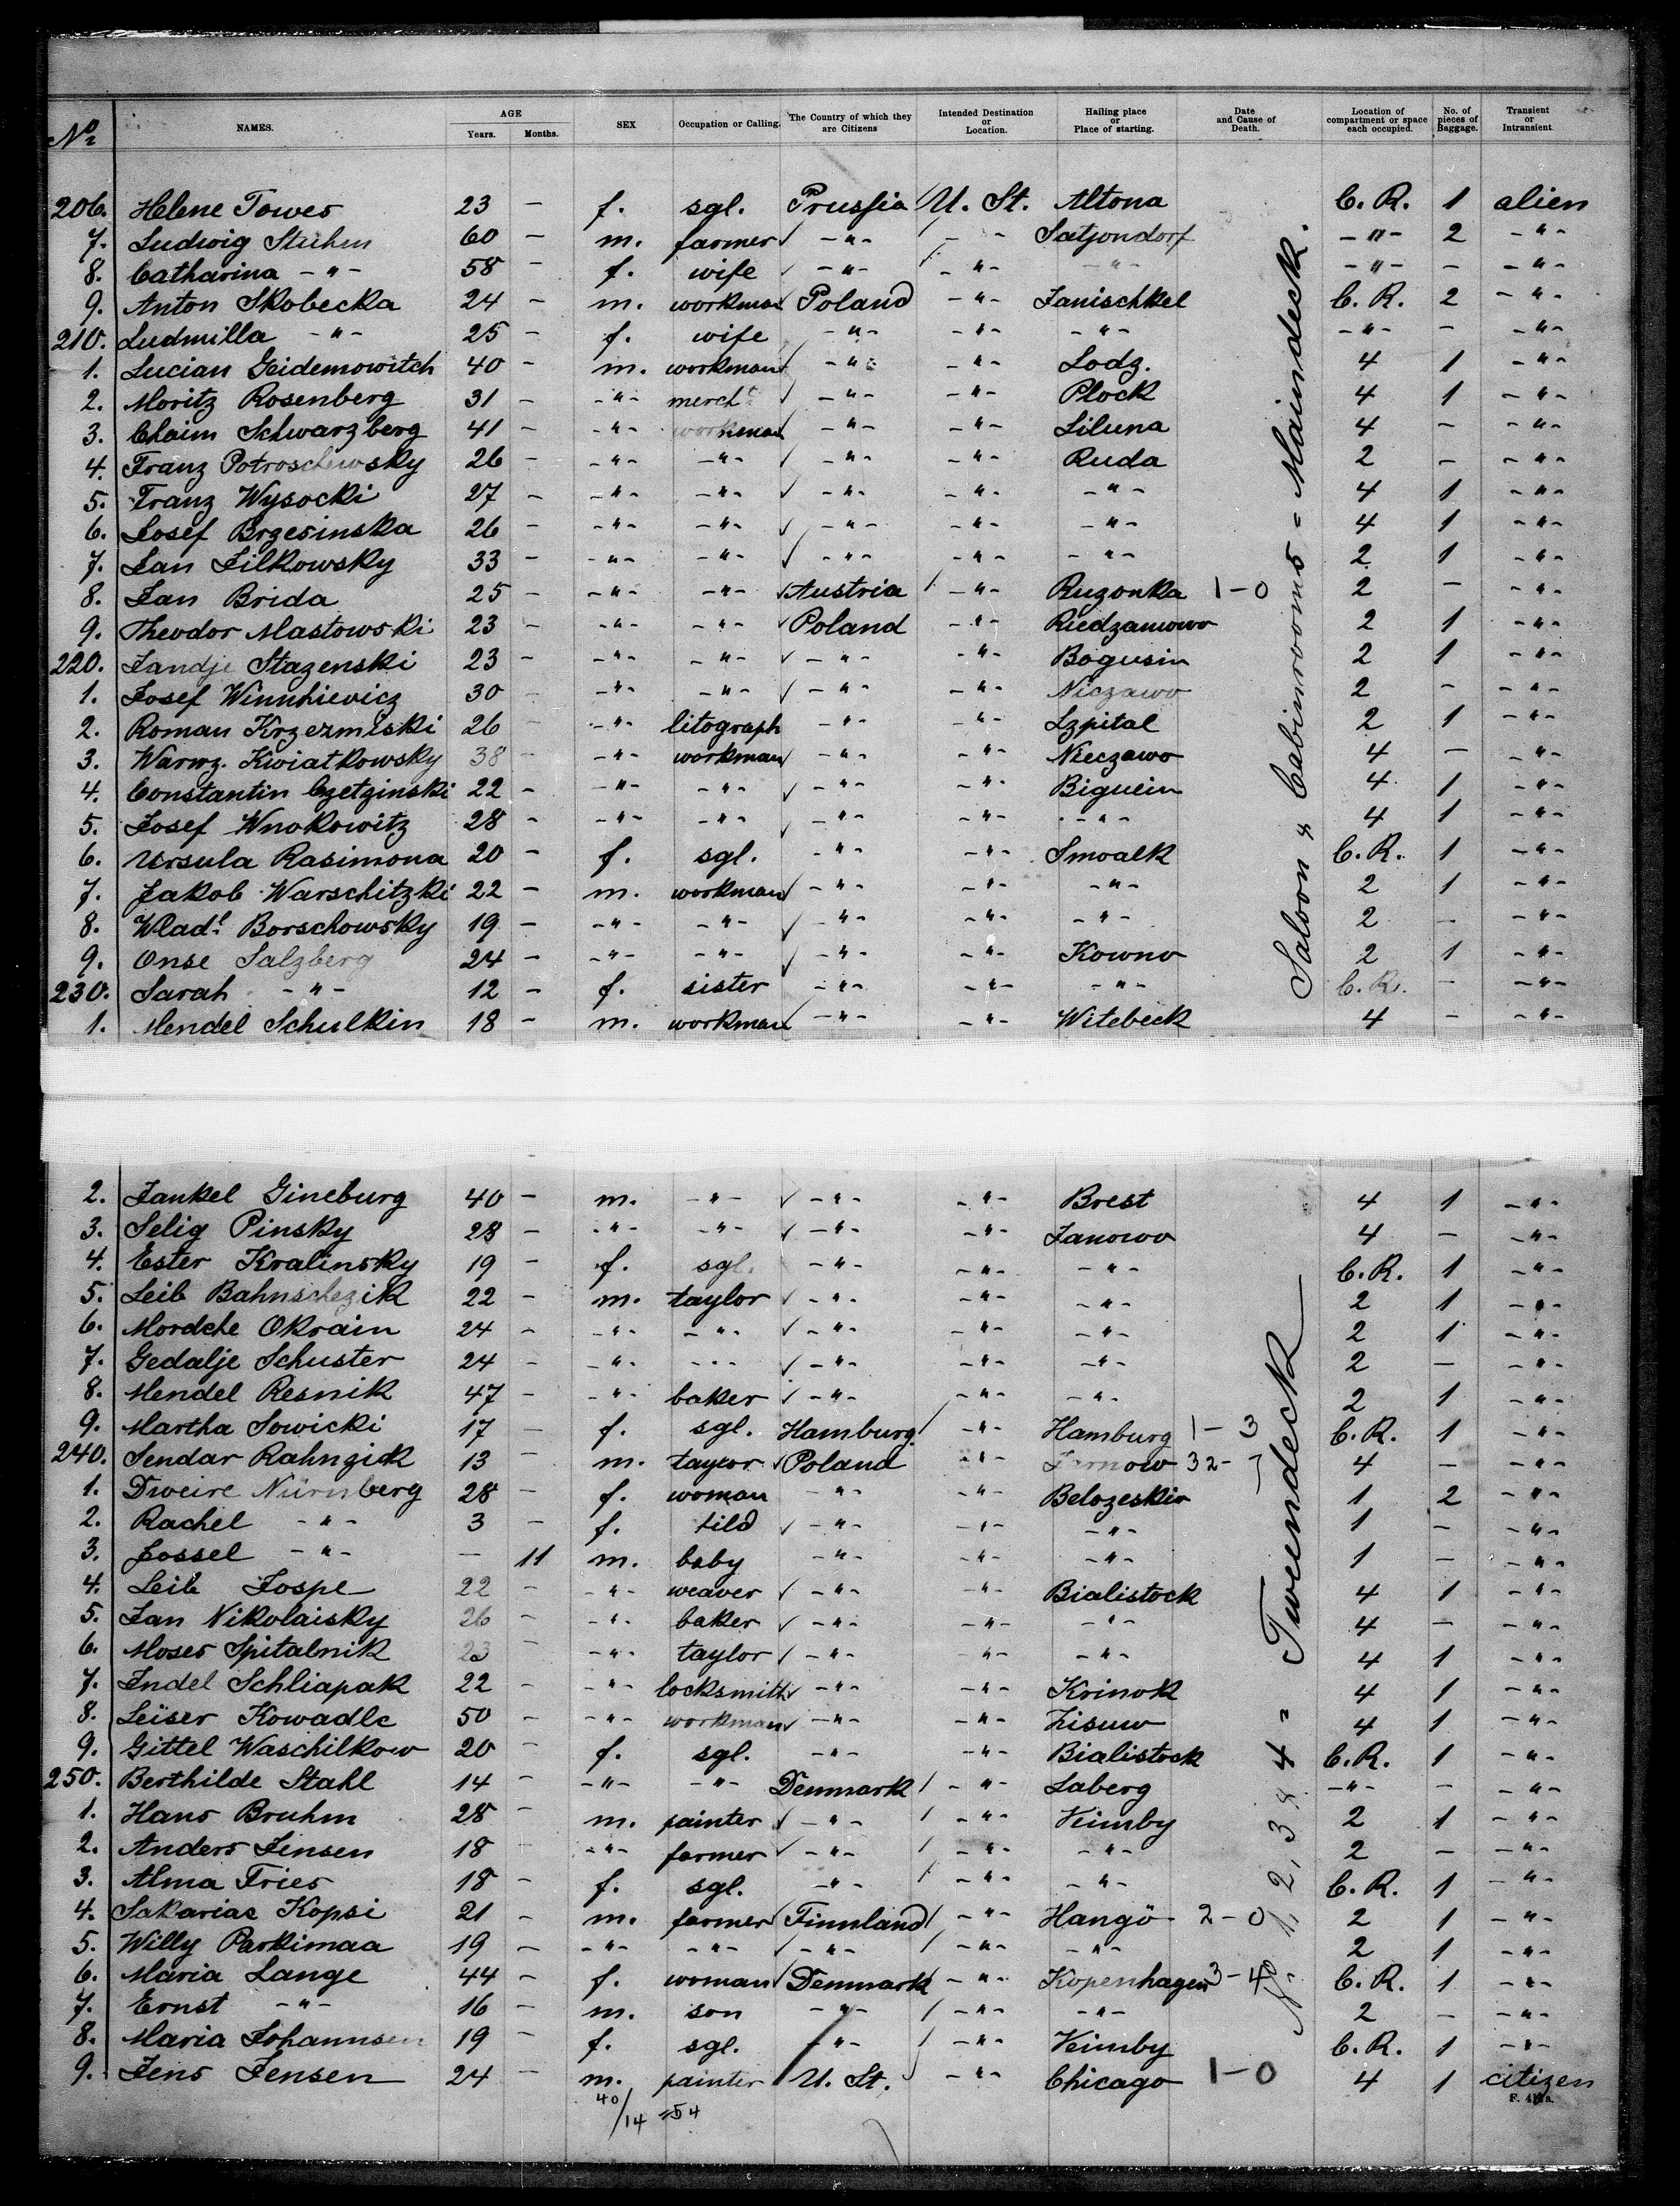 No NAMES. AGE Years. Months. SEX Occupation or Calling. The Country of which they are Citizens Intended Destination or Location. Hailing place or Place of starting. Date and Cause of Death. Location of compartment or space each occupied. No. of pieces of Baggage. Transient or Intransient.
206. Helene Towes 23 - f. sgl. Prussia U. St. Altona C. R. 1 alien
7. Ludwig Stuhm 60 - m. farmer -"- - - Satjondorf -"- 2 -"-
8. Catharina -"- 58 - f. wife -"- -"- -"- -"- - -"-
9. Anton Skobecka 24 - m. workman Poland -"- Janischkel C. R. 2 -"-
210. Ludmilla -"- 25 - f. wife -"- -"- -"- -"- - -"-
1. Lucian Geidemowitch 40 - m. workman -"- -"- Lodz. 4 1 -"-
2. Moritz Rosenberg 31 - -"- mercht -"- -"- Plock 4 1 -"-
3. Chaim Schwarzberg 41 - -"- workman -"- -"- Liluna 4 - -"-
4. Franz Potroschewsky 26 - -"- -"- -"- -"- Ruda 2 - -"-
5. Franz Wysocki 27 - -"- -"- -"- -"- -"- 4 1 -"-
6. Josef Brzesinska 26 - -"- -"- -"- -"- -"- 4 1 -"-
7. Jan Filkowsky 33 - -"- -"- -"- -"- -"- 2 1 -"-
8. Jan Brida 25 - -"- -"- Austria -"- Ruzonka 1-0 2 - -"-
9. Theodor Mastowski 23 - -"- -"- Poland -"- Riedzamowo 2 1 -"-
220. Jandje Stazenski 23 - -"- -"- -"- -"- Bogusin 2 1 -"-
1. Josef Winnhievicz 30 - -"- -"- -"- -"- Niczawo 2 - -"-
2. Roman Krzezmiski 26 - -"- litograph -"- -"- Szpital 2 1 -"-
3. Warwz. Kwiatkowsky 38 -"- workman -"- -"- Nieczawo 4 - -"-
4. Constantin Czetzinski 22 - -"- -"- -"- -"- Biguein 4 1 -"-
5. Josef Wnokowitz 28 - -"- -"- -"- -"- -"- 4 1 -"-
6. Ursula Rasimona 20 - f. sgl. -"- -"- Smoalk C. R. 1 -"-
7. Jakob Warschitzki 22 - m. workman -"- -"- -"- 2 1 -"-
8. Wladl Borschowsky 19 - -"- -"- -"- -"- -"- 2 - -"-
9. Onse Salzberg 24 - -"- -"- -"- -"- Kowno 2 1 -"-
230. Sarah -"- 12 - f. sister -"- -"- -"- C. R. - -"-
1. Mendel Schulkin 18 - m. workman -"- -"- Witebeck 4 - -"-
Saloon & Cabinrooms = Maindeck.
2. Jankel Gineburg 40 - m. -"- -"- -"- Brest 4 1 -"-
3. Selig Pinsky 28 - -"- -"- -"- -"- Janowo 4 - -"-
4. Ester Kralinsky 19 - f. sgl. -"- -"- -"- C. R. 1 -"-
5. Leib Bahnschezik 22 - m. taylor -"- -"- -"- 2 1 -"-
6. Mordche Okrain 24 - -"- -"- -"- -"- -"- 2 1 -"-
7. Gedalje Schuster 24 - -"- -"- -"- -"- -"- 2 - -"-
8. Mendel Resnik 47 - -"- baker -"- -"- -"- 2 1 -"-
9. Martha Sowicki 17 - f. sgl. Hamburg -"- Hamburg 1-3 C. R. 1 -"-
240. Sendar Rahnzick 13 - m. taylor Poland -"- 32- 4 - -"-
1. Dweire Nürnberg 28 - f. woman -"- -"- Belozeskir 1 2 -"-
2. Rachel -"- 3 - f. tild -"- -"- -"- 1 - -"-
3. Jossel -"- - 11 m. baby -"- -"- -"- 1 - -"-
4. Leib Jospe 22 - -"- weaver -"- -"- Bialistock 4 1 -"-
5. Jan Nikolaisky 26 - -"- baker -"- -"- -"- 4 - -"-
6. Moses Spitalnik 23 - -"- taylor -"- -"- -"- 4 1 -"-
7. Indel Schliapak 22 - -"- locksmith -"- -"- Krinok 4 1 -"-
8. Leiser Kowadlc 50 - -"- workman -"- -"- Zisuw 4 1 -"-
9. Gittel Waschilkow 20 - f. sgl. -"- -"- Bialistock C. R. 1 -"-
250. Berthilde Stahl 14 - -"- -"- Denmark -"- Laberg -"- - -"-
1. Hans Bruhm 28 - m. painter -"- -"- Veimby 2 1 -"-
2. Anders Jensen 18 - -"- farmer -"- -"- -"- 2 - -"-
3. Alma Fries 18 - f. sgl. -"- -"- -"- C. R. 1 -"-
4. Sakarias Kopsi 21 - m. farmer Finnland -"- Hangö 2-0 2 1 -"-
5. Willy Parkimaa 19 - -"- -"- -"- -"- -"- 2 1 -"-
6. Maria Lange 44 - f. woman Denmark -"- Kopenhagen 3-4 C. R. 1 -"-
7. Ernst -"- 16 - m. son -"- -"- -"- 2 - -"-
8. Maria Johannsen 19 - f. sgl. -"- -"- Veimby C. R. 1 -"-
9. Jens Jensen 24 - m. painter U. St. -"- Chicago 1-0 4 1 citizen
No 1, 2, 3 & 4 = Tweendeck
40/14 =54